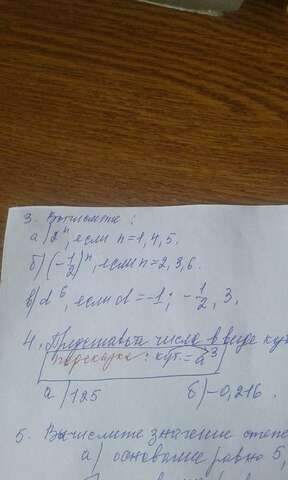 3. Вычислите:
а) 2ⁿ, если n=1,4,5.
б) (-1/2)ⁿ, если n=2,3,6.
в) d⁶, если d=-1; -1/2, 3,
4. Представьте числа в виде ку
Подсказка: куб.=a³
а) 125 б) -0,216.
5. Вычислите значение степе
а) основание равно 5,